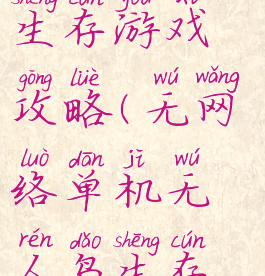 shēng cún yóu xì
生存游戏
gōng lüè wú wǎng
攻略(无网
luò dān jī wú
络单机无
rén dǎo shēng cún
人岛生存